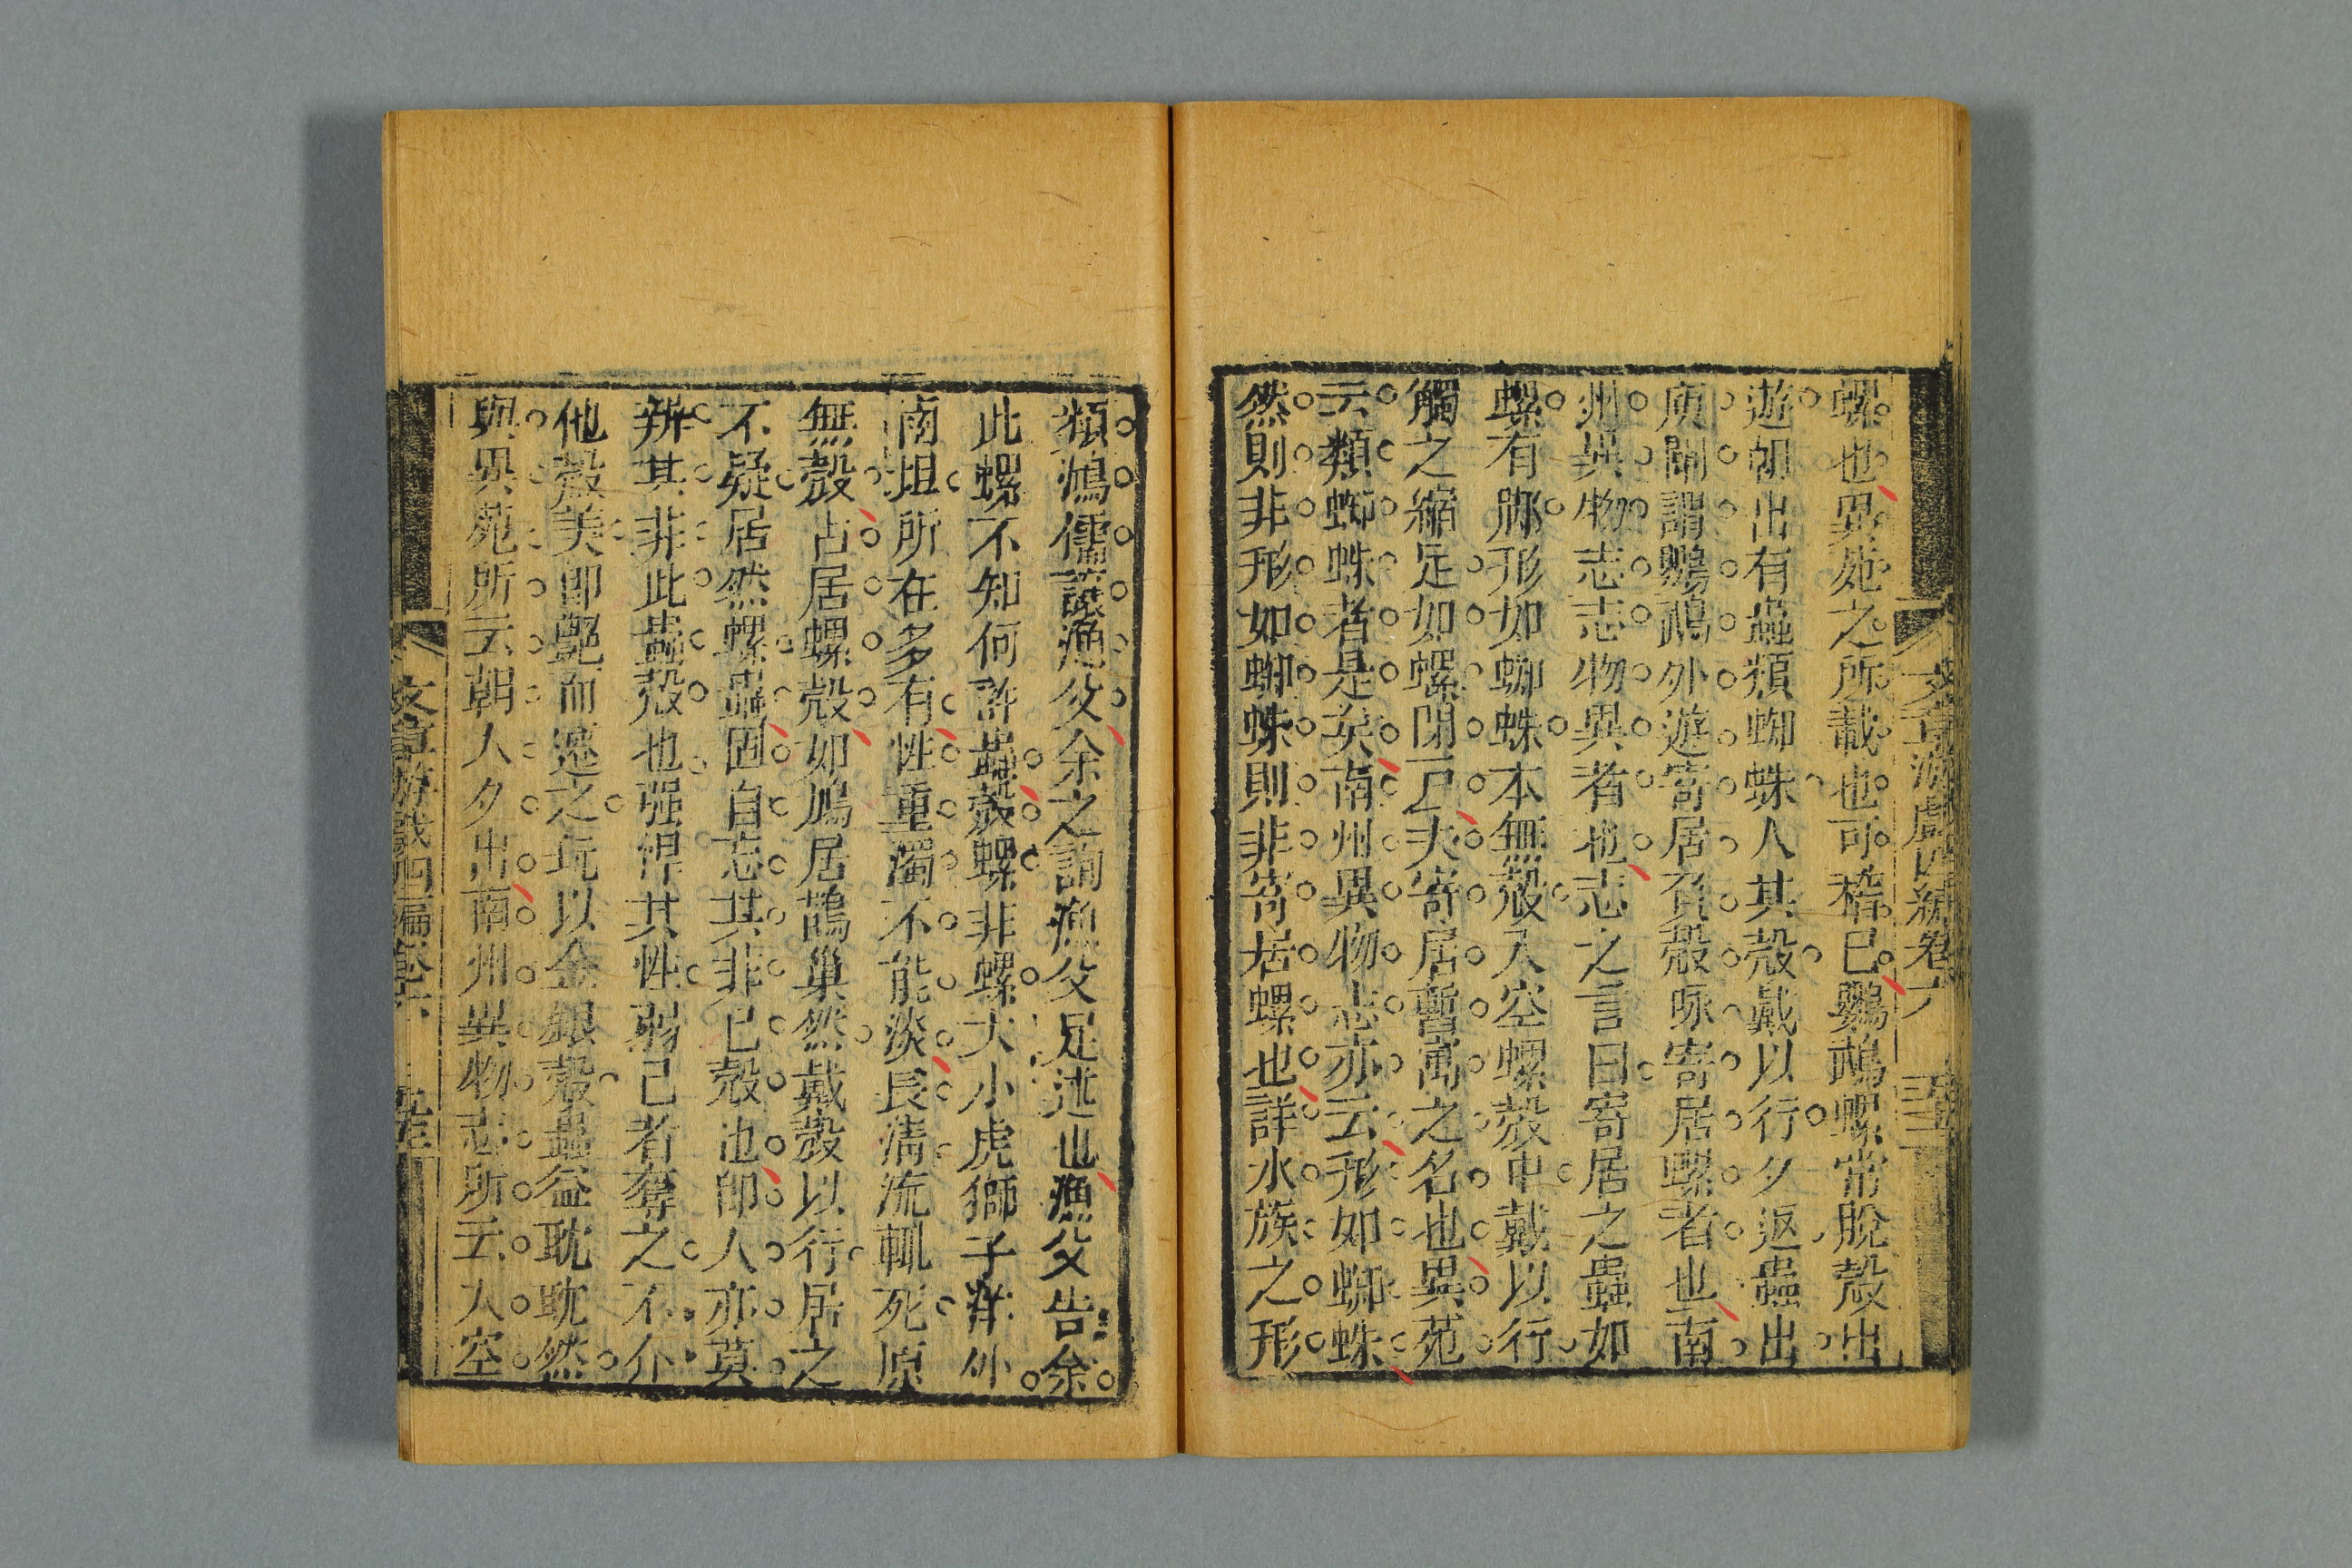 文章游戲四編卷六
螺也異苑之所載也可稽已鸚鵡螺常脫殼出
遊朝出有蟲類蜘蛛入其殼戴以行夕返蟲出
庾闡謂鸚鵡外遊寄居負殼咏寄居螺者也南
州異物志志物異者也志之言曰寄居之蟲如
螺有脚形如蜘蛛本無殼入空螺殼中戴以行
觸之縮足如螺閉戸夫寄居暫寓之名也異苑
云類蜘蛛者是矣南州異物志亦云形如蜘蛛
然則非形如蜘蛛則非寄居螺也詳水族之形
類鴻儒讓漁父余之詢漁父足述也漁父告余
此螺不知何許蟲戴螺非螺大小虎獅子猪外
南坦所在多有性重濁不能淡長清流輒死原
無殼占居螺殼如鳩居鵲巢然戴殼以行居之
不疑居然螺蟲固自忘其非已殼也卽人亦莫
辨其非此蟲殼也强悍其性弱己者奪之不仆
他殼美卽豔而逐之玩以金銀殼蟲益耽耽然
與異苑所云朝入夕出南州異物志所云入空
文章游戲四編卷六